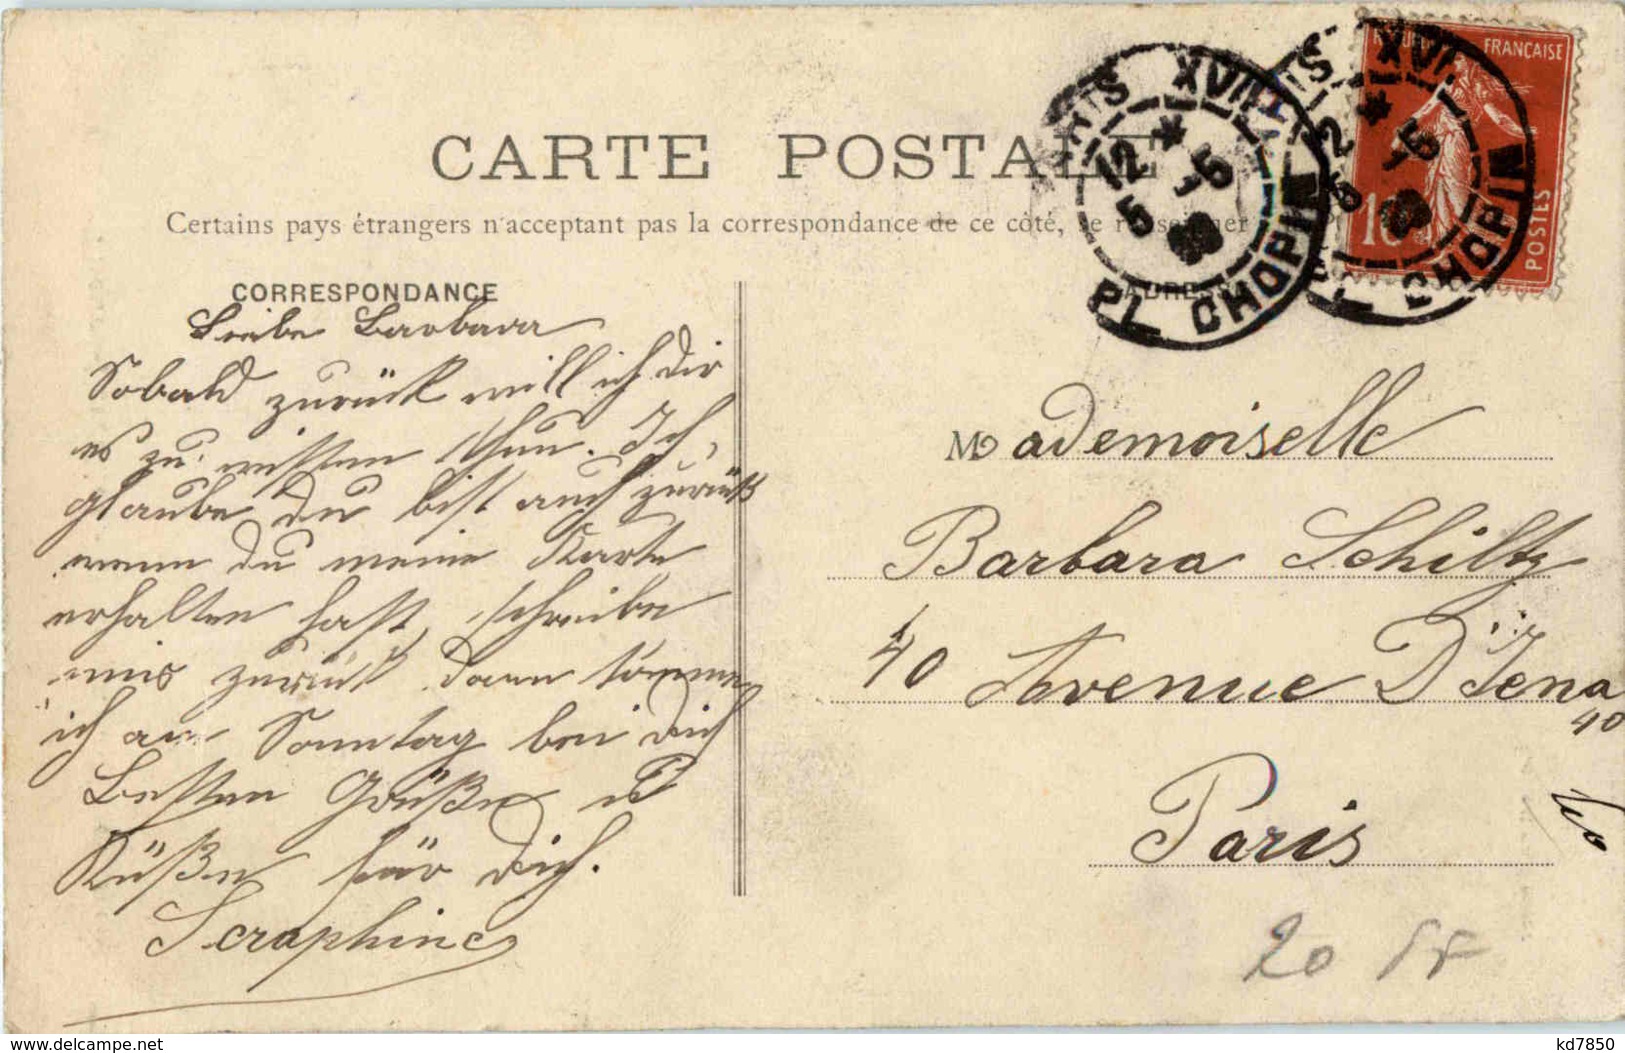 CARTE POSTALE
Certains pays étrangers n'acceptant pas la correspondance de ce côté, se renseigner
CORRESPONDANCE
ADRESSE
Liebe Barbara
Sobald zurück will ich dir
es zu wissen thun. Ich
glaube du bist auch zurück
wenn du meine Karte
erhalten hast, schreibe
mir zurück dann komme
ich am Sonntag bei dich
Besten Grüße u
Küße für dich.
Seraphine
Mademoiselle
Barbara Schiltz
40 Avenue D'Iena
40
Paris
20
PARIS XVI
12 * 5
5
PL CHOPIN
PARIS XVI
12 * 5
5
PL CHOPIN
FRANÇAISE
POSTES
10
kd7850